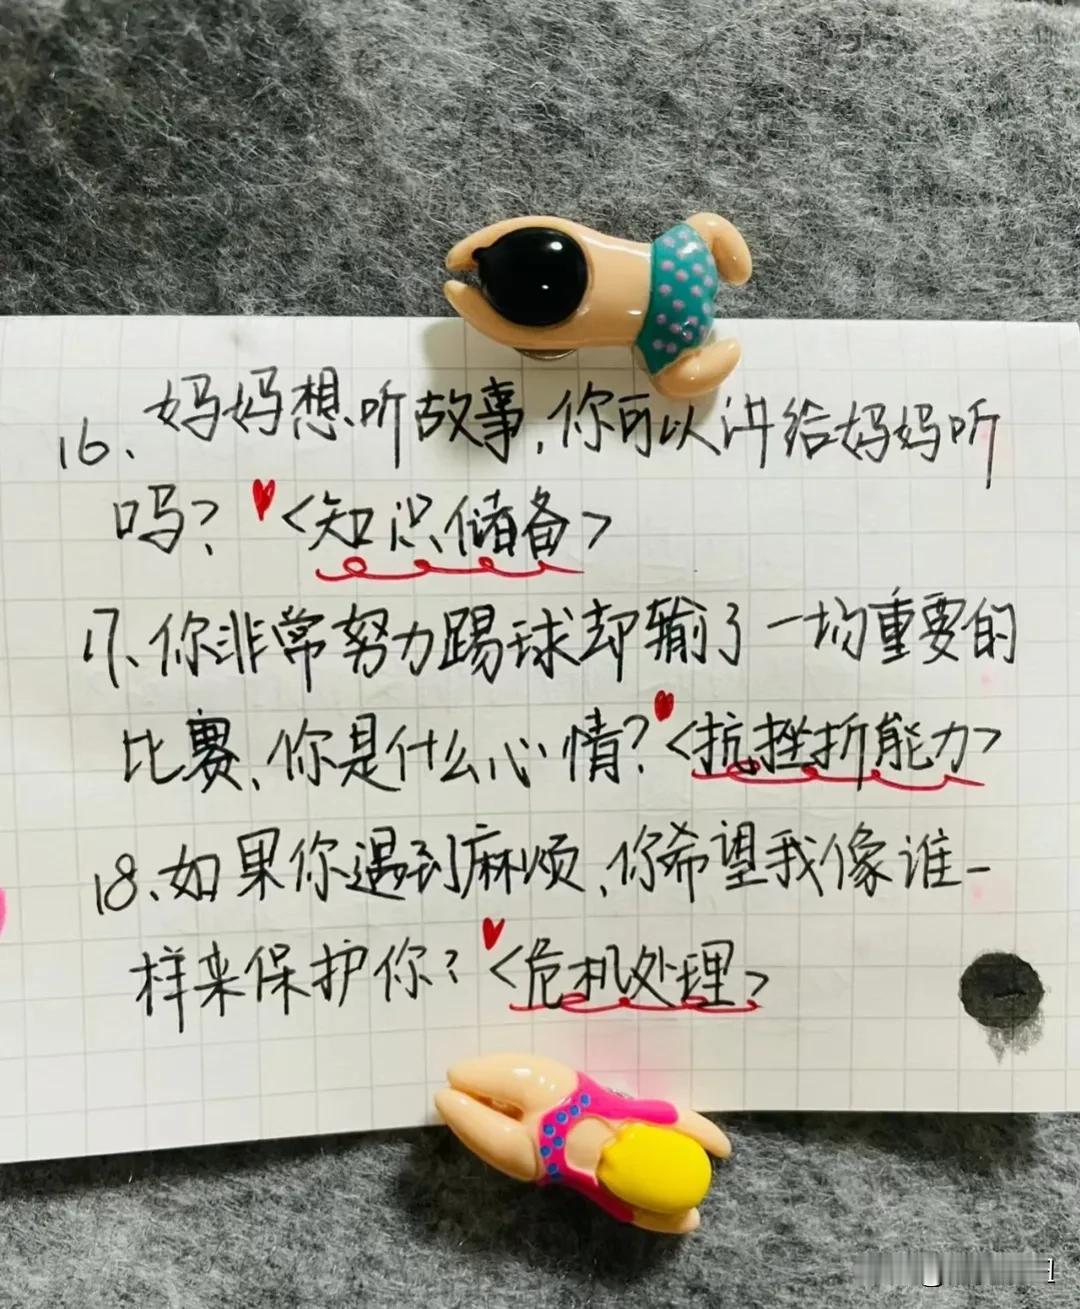 16、妈妈想听故事,你可以讲给妈妈听
吗?<知识储备>
17、你非常努力踢球却输了一场重要的
比赛,你是什么心情?<抗挫折能力>
18、如果你遇到麻烦,你希望我像谁一
样来保护你?<危机处理>